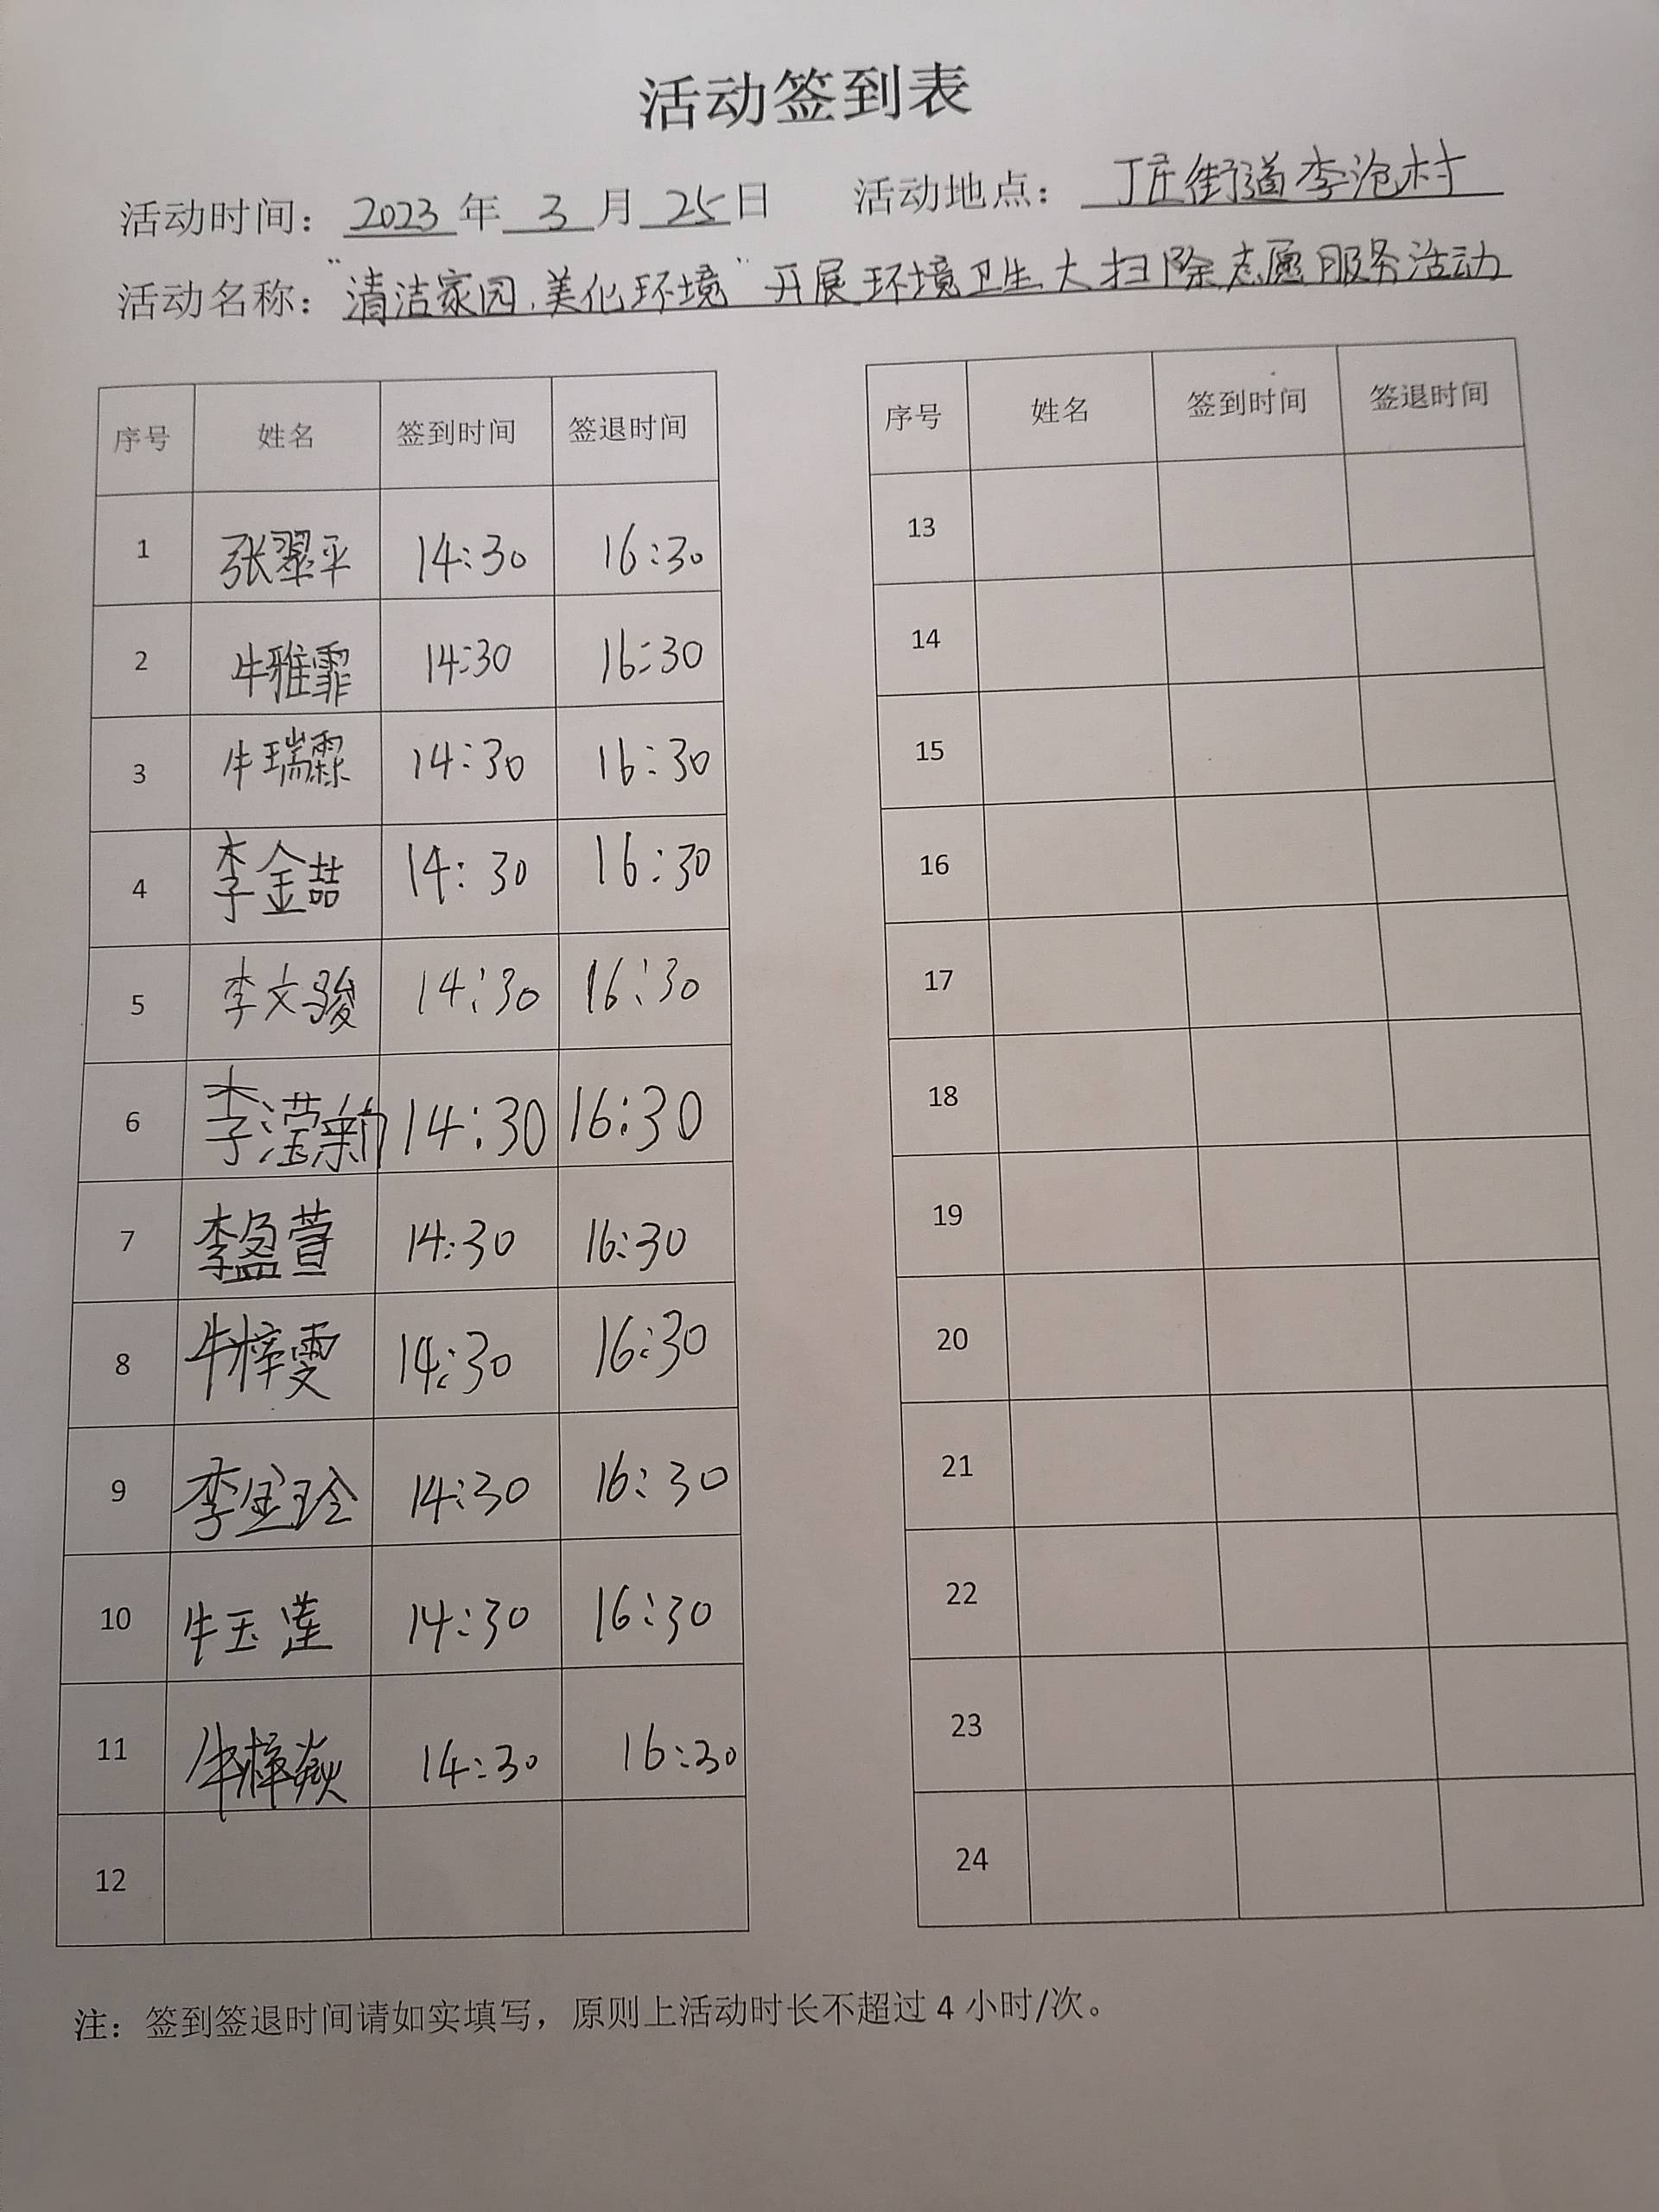 活动签到表
活动时间：2023年3月25日 活动地点：丁庄街道李沧村
活动名称："清洁家园，美化环境"开展环境卫生大扫除志愿服务活动
序号 姓名 签到时间 签退时间
1 张翠平 14:30 16:30
2 牛雅霏 14:30 16:30
3 牛瑞霖 14:30 16:30
4 李金喆 14:30 16:30
5 李文骏 14:30 16:30
6 李滢新 14:30 16:30
7 李盈萱 14:30 16:30
8 牛梓雯 14:30 16:30
9 李宝玲 14:30 16:30
10 牛玉莲 14:30 16:30
11 牛梓焱 14:30 16:30
12
序号 姓名 签到时间 签退时间
13
14
15
16
17
18
19
20
21
22
23
24
注：签到签退时间请如实填写，原则上活动时长不超过4小时/次。